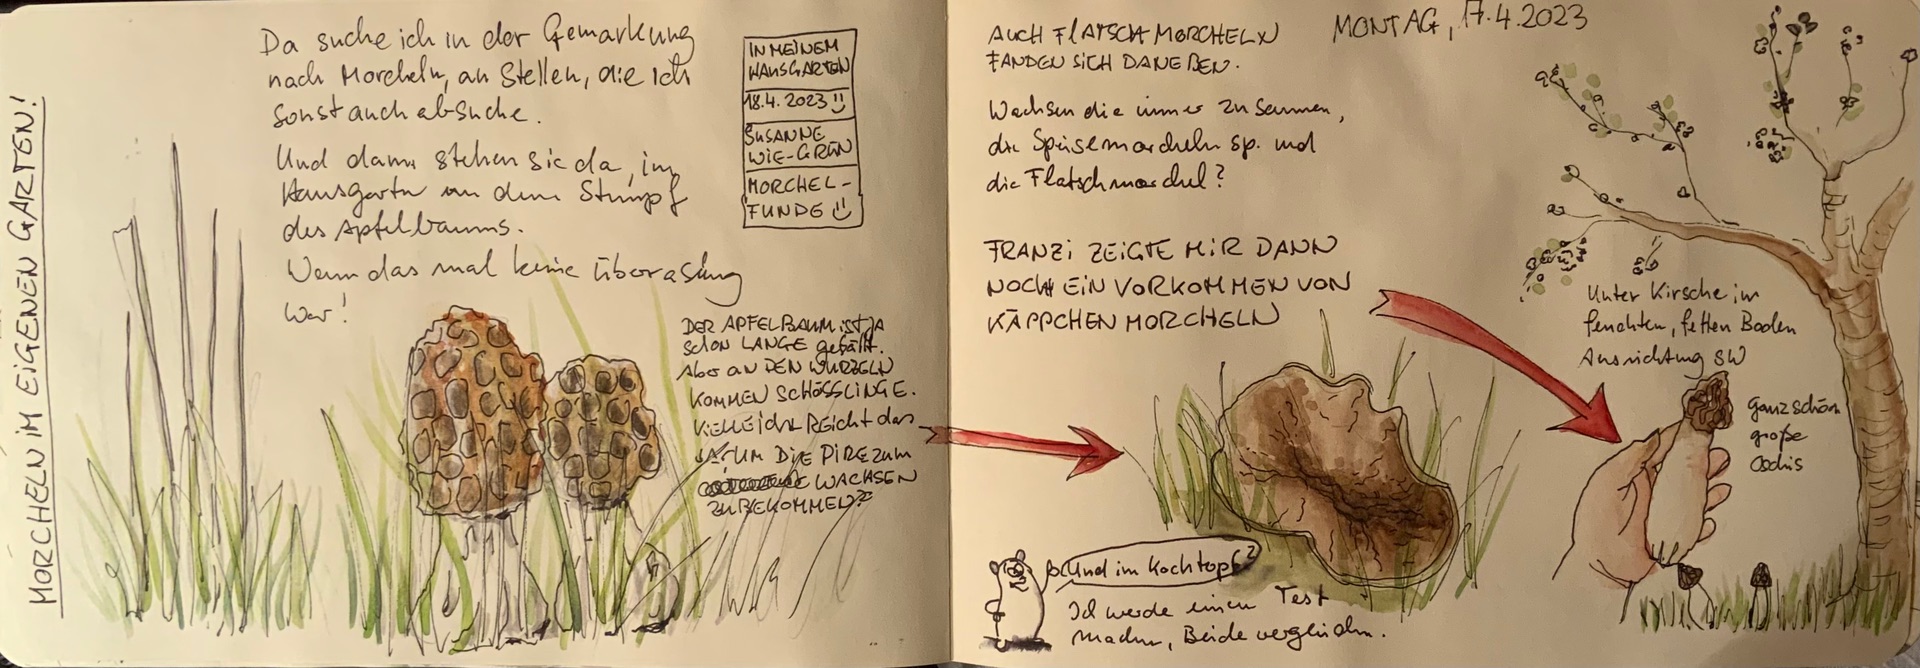 MORCHELN IM EIGENEN GARTEN!
Da suche ich in der Gemarkung
nach Morcheln, an Stellen, die ich
sonst auch absuche.
Und dann stehen sie da, im
Hausgarten an dem Stumpf
des Apfelbaums.
Wenn das mal keine Überraschung
war!
IN MEINEM
HAUSGARTEN
18.4.2023
SUSANNE
WIE-GRÜN
MORCHEL-
FUNDE
DER APFELBAUM ist ja
schon LANGE gefällt.
Aber an DEN WURZELN
KOMMEN SCHÖSSLINGE.
Vielleicht Reicht das
JA, UM DIE PILZE ZUM
WACHSEN
ZU BEKOMMEN?
AUCH FLATSCHMORCHELN
FANDEN SICH DANEBEN.
MONTAG, 17.4.2023
Wachsen die immer zusammen,
die Speisemorcheln sp. und
die Flatschmorchel?
FRANZI ZEIGTE MIR DANN
NOCH EIN VORKOMMEN VON
KÄPPCHEN MORCHELN
Unter Kirsche im
feuchten, fetten Boden
Ausrichtung SW
Ganz schön
große
Und im Kochtopf?
Ich werde einen Test
machen, Beide vergleichen.